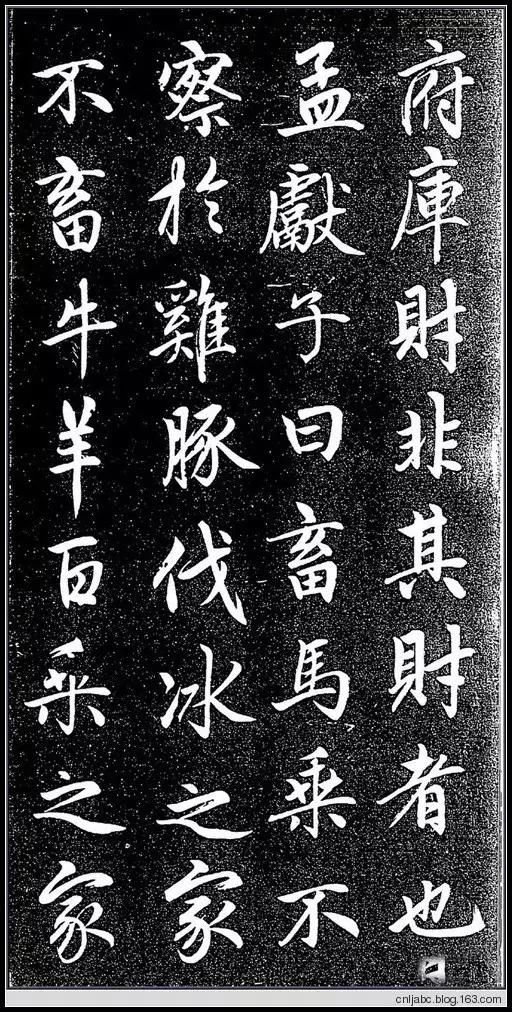 府庫財非其財者也
孟獻子曰畜馬乘不
察於雞豚伐冰之家
不畜牛羊百乘之家
cnljabc.blog.163.com